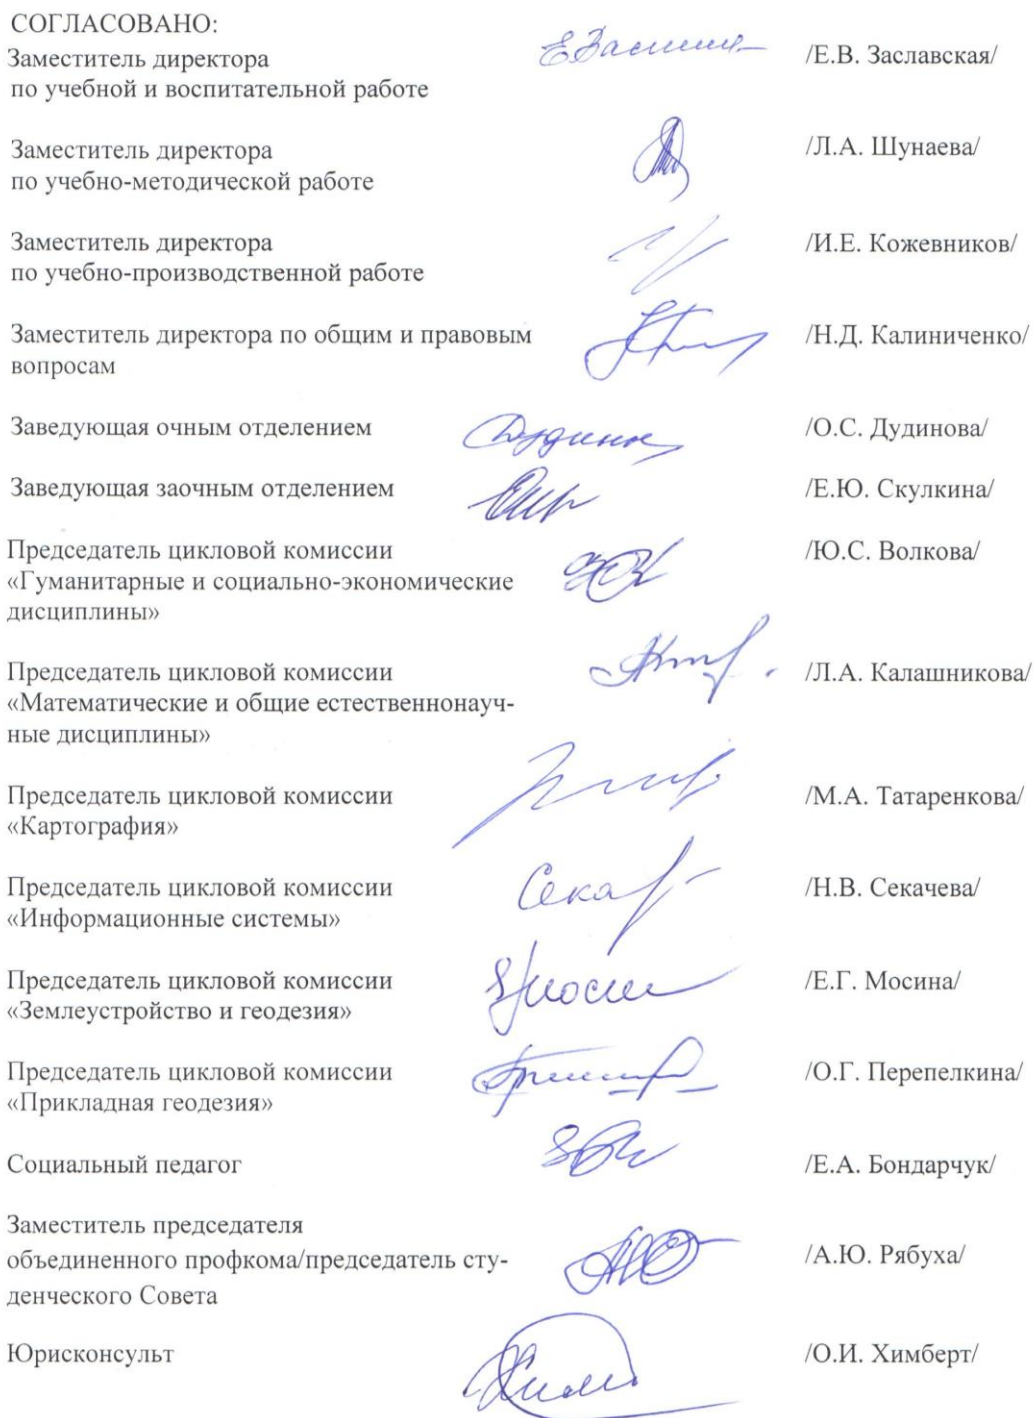 СОГЛАСОВАНО:
Заместитель директора
по учебной и воспитательной работе
/Е.В. Заславская/
Заместитель директора
по учебно-методической работе
/Л.А. Шунаева/
Заместитель директора
по учебно-производственной работе
/И.Е. Кожевников/
Заместитель директора по общим и правовым
вопросам
/Н.Д. Калиниченко/
Заведующая очным отделением
/О.С. Дудинова/
Заведующая заочным отделением
/Е.Ю. Скулкина/
Председатель цикловой комиссии
«Гуманитарные и социально-экономические
дисциплины»
/Ю.С. Волкова/
Председатель цикловой комиссии
«Математические и общие естественнонауч-
ные дисциплины»
/Л.А. Калашникова/
Председатель цикловой комиссии
«Картография»
/М.А. Татаренкова/
Председатель цикловой комиссии
«Информационные системы»
/Н.В. Секачева/
Председатель цикловой комиссии
«Землеустройство и геодезия»
/Е.Г. Мосина/
Председатель цикловой комиссии
«Прикладная геодезия»
/О.Г. Перепелкина/
Социальный педагог
/Е.А. Бондарчук/
Заместитель председателя
объединенного профкома/председатель сту-
денческого Совета
/А.Ю. Рябуха/
Юрисконсульт
/О.И. Химберт/